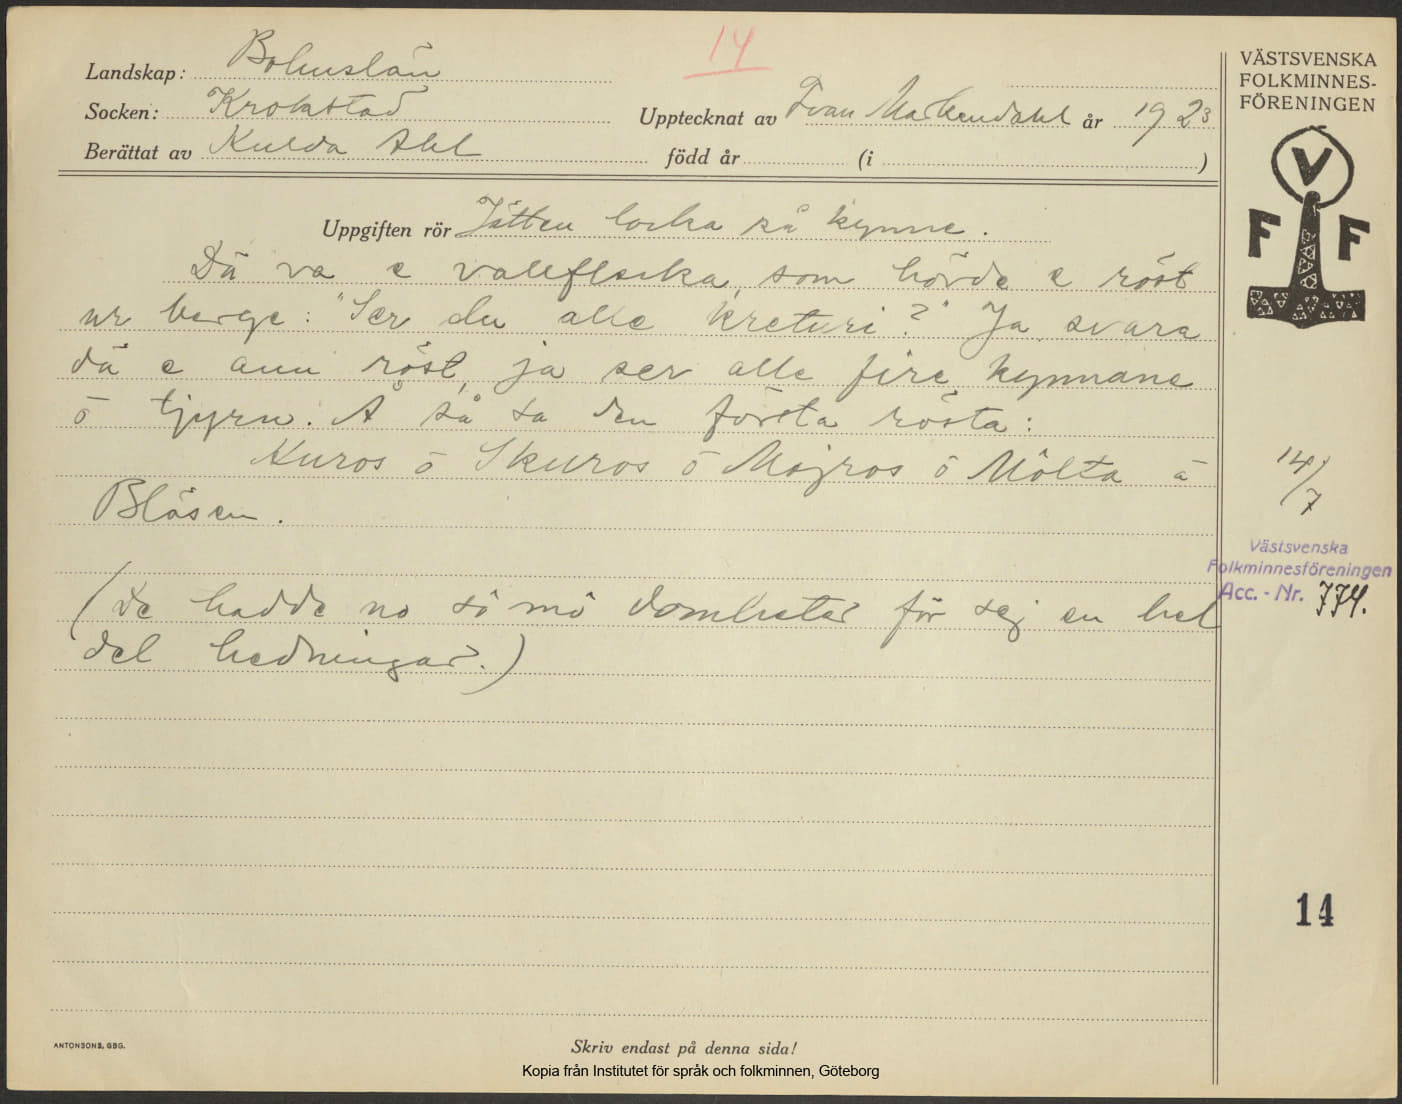 14
Landskap: Bohuslän
Socken: Krokstad
Upptecknat av Ivan Markendahl år 1923
Berättat av Kulda Ahl
född år (i )
VÄSTSVENSKA
FOLKMINNES-
FÖRENINGEN
V
F F
Uppgiften rör Jätten locka så kynne.
Dä va e valleflecka, som hörde e röst
ur berge: "Ser du alle kreturi?" Ja svara
dä e ann röst, ja ser alle fire kynnane
ö tjyrn. Å så sa den första rösta:
Kuros ö Skuros ö Mojros ö Mölta ö
Blåsen.
(De hadde no sö mö domheter för sej en hel
del hedningar.)
14/7
Västsvenska
Folkminnesföreningen
Acc.-Nr. 774.
14
ANTONSONS, GBG.
Skriv endast på denna sida!
Kopia från Institutet för språk och folkminnen, Göteborg